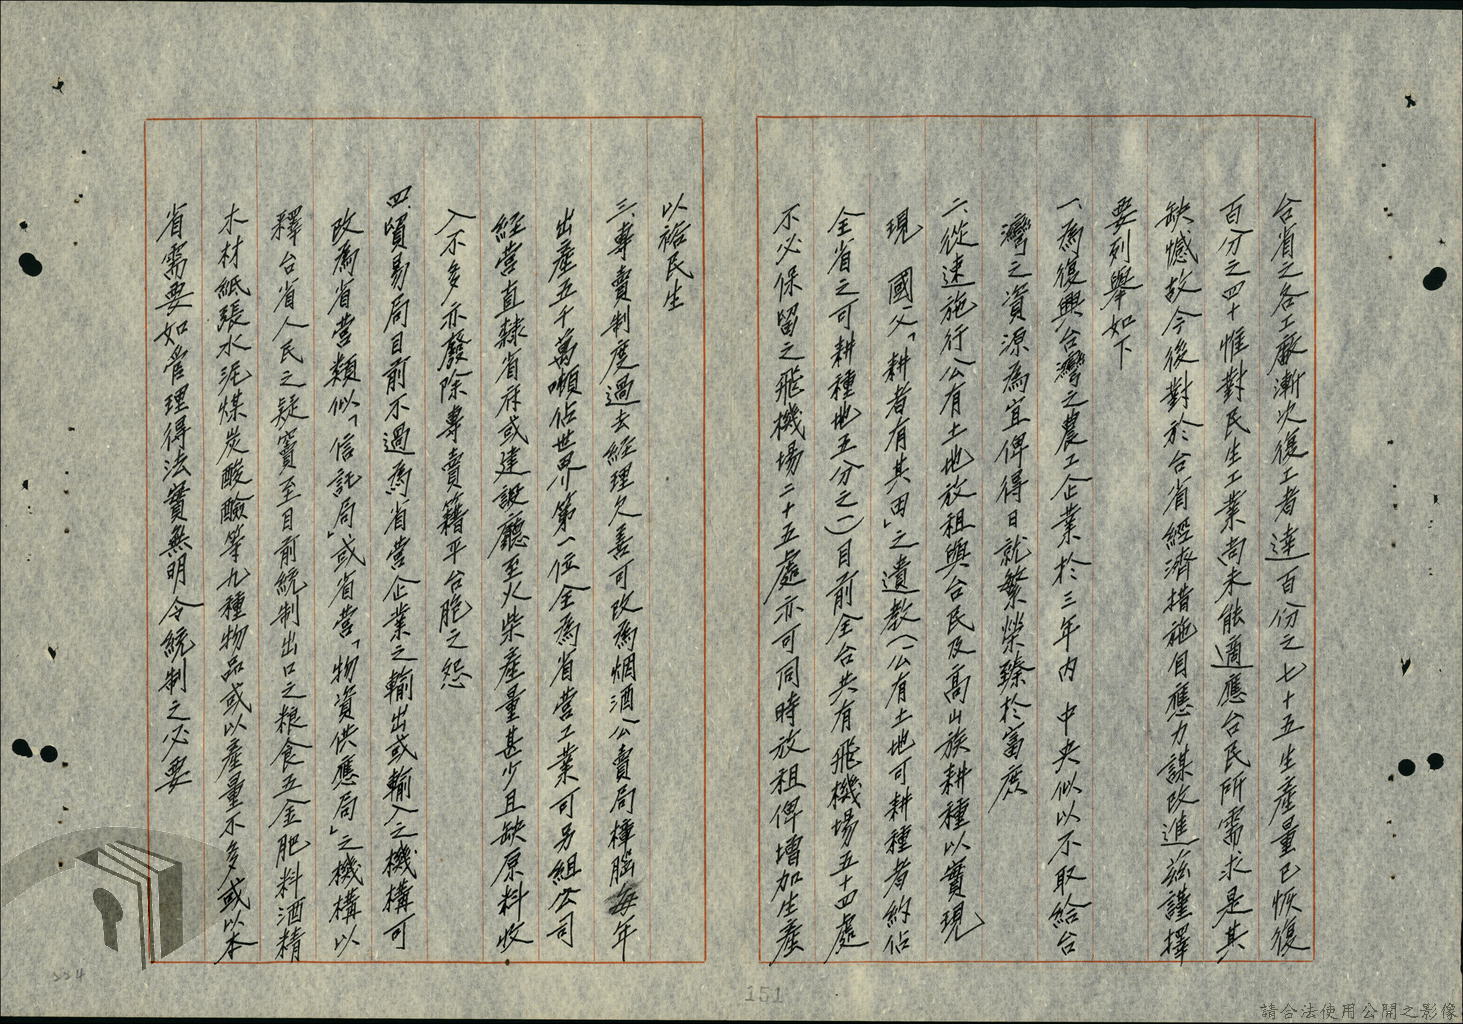 台省之各工廠漸次復工者達百份之七十五生產量已恢復
百分之四十惟對民生工業尚未能適應台民所需求是其
缺憾故今後對於台省經濟措施自應力謀改進茲謹擇
要列舉如下
一、為復興台灣之農工企業於三年內 中央似以不取給台
灣之資源為宜俾得日就繁榮臻於富庶
二、從速施行公有土地放租與台民及高山族耕種以實現
現 國父「耕者有其田」之遺教(公有土地可耕種者約佔
全省之可耕種地五分之一)目前全台共有飛機場五十四處
不必保留之飛機場二十五處亦可同時放租俾增加生產
以裕民生
三、專賣制度過去經理欠善可改為烟酒公賣局樟腦每年
出產五千萬噸佔世界第一位全為省營工業可另組公司
經營直隸省府或建設廳至火柴產量甚少且缺原料收
入不多亦廢除專賣藉平台胞之怨
四、貿易局目前不過為省營企業之輸出或輸入之機構可
改為省營類似「信託局」或省營「物資供應局」之機構以
釋台省人民之疑竇至目前統制出口之粮食五金肥料酒精
木材紙張水泥煤炭酸鹼等九種物品或以產量不多或以本
省需要如管理得法實無明令統制之必要
151
224
請合法使用公開之影像